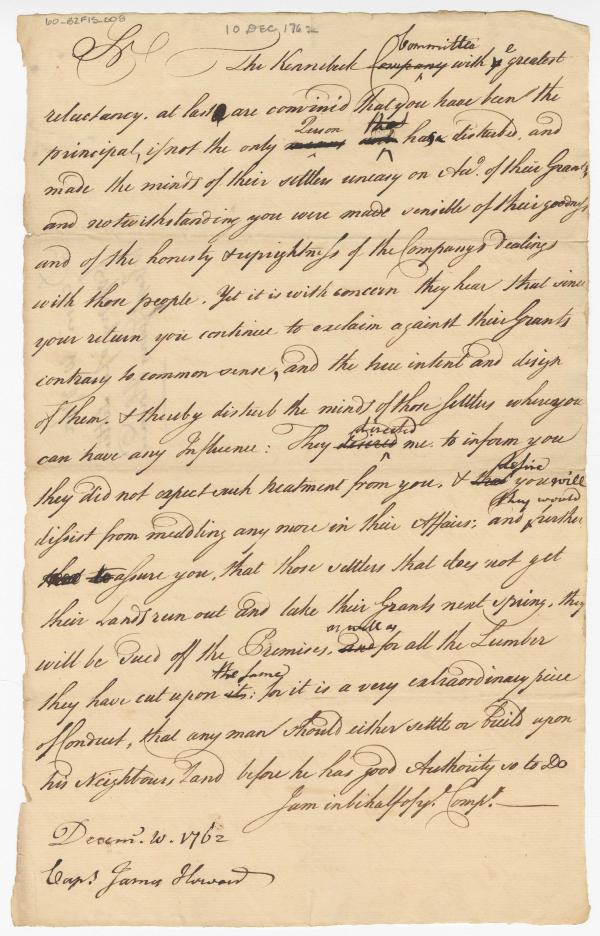 60-82F15-608
10 DEC 1762
Sr
Committee
The Kennebeck Company with ye greatest
reluctancy. at last are convinc'd that you have been the
Person that
principal, if not the only and has disturbed, and
made the minds of their settlers uneasy on Acco. of their Grants,
and notwithstanding you were made sensible of their goodness
and of the honesty & uprightness of the Companys dealings
with those people. Yet it is with concern they hear that since
your return you continue to exclaim against their Grants
contrary to common sense, and the true intent and design
of them. & thereby disturb the minds of those Settlers where you
can have any Influence: They desired directed me to inform you
they did not expect such treatment from you, & that desire you will
dissist from meddling any more in their Affairs; and they would further
assure you, that those settlers that does not get
their Lands run out and take their Grants next Spring, they
will be Sued off the Premises, and as well as for all the Lumber
they have cut upon its the same; for it is a very extraordinary piece
of Conduct, that any man should either settle or build upon
his Neighbours Land before he has good Authority so to Do
I am in behalf of ye. Compy.
Decemr. 10. 1762
Capt James Howard